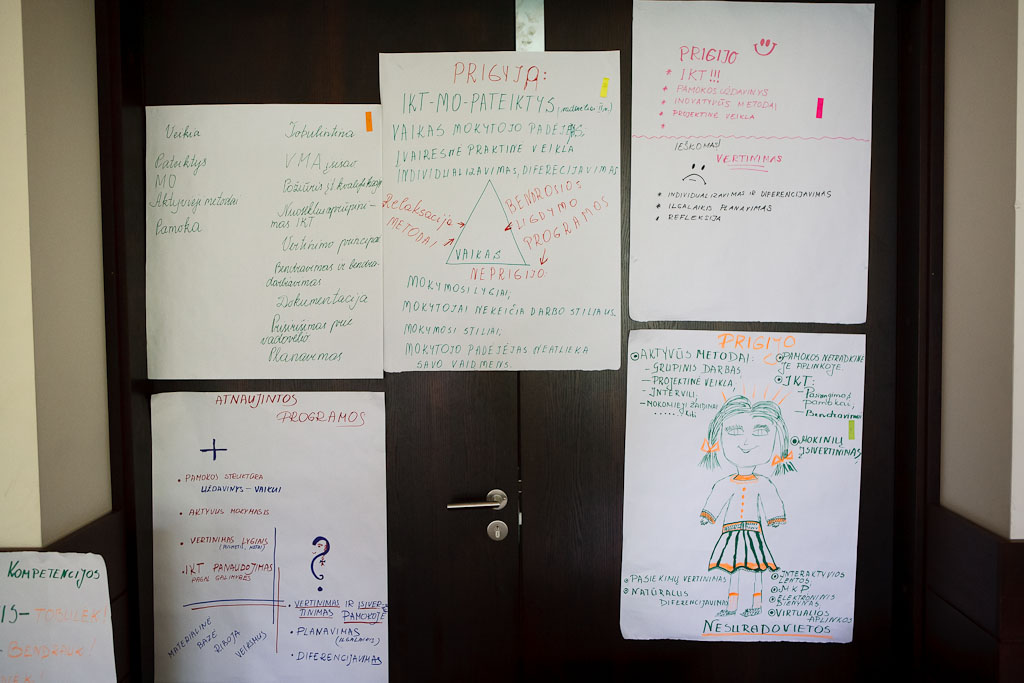 Veikia
Pateiktys
MO
Aktyvieji metodai
Pamoka
Tobulintina
VMA
Požiūris į kvalifikaciją
mas IKT
Vertinimo principai
Bendravimas ir bendra-
darbiavimas
Dokumentacija
Prisirišimas prie
vadovėlio
Planavimas
PRIGYJA:
IKT-MO-PATEIKTYS
VAIKAS MOKYTOJO PADĖJĖJAS,
ĮVAIRESNĖ PRAKTINĖ VEIKLA
INDIVIDUALIZAVIMAS, DIFERECIJAVIMAS
Relaksacijos
METODAI
BENDROSIOS
UGDYMO
PROGRAMOS
VAIKAS
NEPRIGIJO:
MOKYMOSI LYGIAI;
MOKYTOJAI NEKEIČIA DARBO STILIAUS;
MOKYMOSI STILIAI;
MOKYTOJO PADĖJĖJAS NEATLIEKA
SAVO VAIDMENS.
PRIGIJO
* IKT!!!
* PAMOKOS UŽDAVINYS
* INOVATYVŪS METODAI
* PROJEKTINĖ VEIKLA
*
IEŠKOMAS!
VERTINIMAS
* INDIVIDUALIZAVIMAS IR DIFERENCIJAVIMAS
* ILGALAIKIS PLANAVIMAS
* REFLEKSIJA
ATNAUJINTOS
PROGRAMOS
+
• PAMOKOS STRUKTŪRA
UŽDAVINYS – VAIKUI
• AKTYVUS MOKYMASIS
• VERTINIMAS LYGINIS
• IKT PANAUDOJIMAS
PAGAL GALIMYBES
?
MATERIALINĖ
BAZĖ
RIBOJA
VEIKIMUS
• VERTINIMAS IR ĮSIVER-
TINIMAS PAMOKOJE
• PLANAVIMAS
(ILGALAIKIS)
• DIFERENCIJAVIMAS
PRIGIJO
AKTYVŪS METODAI:
– GRUPINIS DARBAS
– PROJEKTINĖ VEIKLA,
– INTERVIU,
– MOKOMIEJI ŽAIDIMAI
PAMOKOS NETRADICINĖ-
JE APLINKOJE.
IKT:
– Pasirengimas
pamokai,
– Bendravimas
MOKINIŲ
ĮSIVERTINIMAS
PASIEKIMŲ VERTINIMAS
NATŪRALUS
DIFERENCIJAVIMAS
INTERAKTYVIOS
LENTOS
MKP
ELEKTRONINIS
DIENYNAS
VIRTUALIOS
APLINKOS
NESURADOVIETOS
KOMPETENCIJOS
IS – TOBULĖK!
– BENDRAUK!